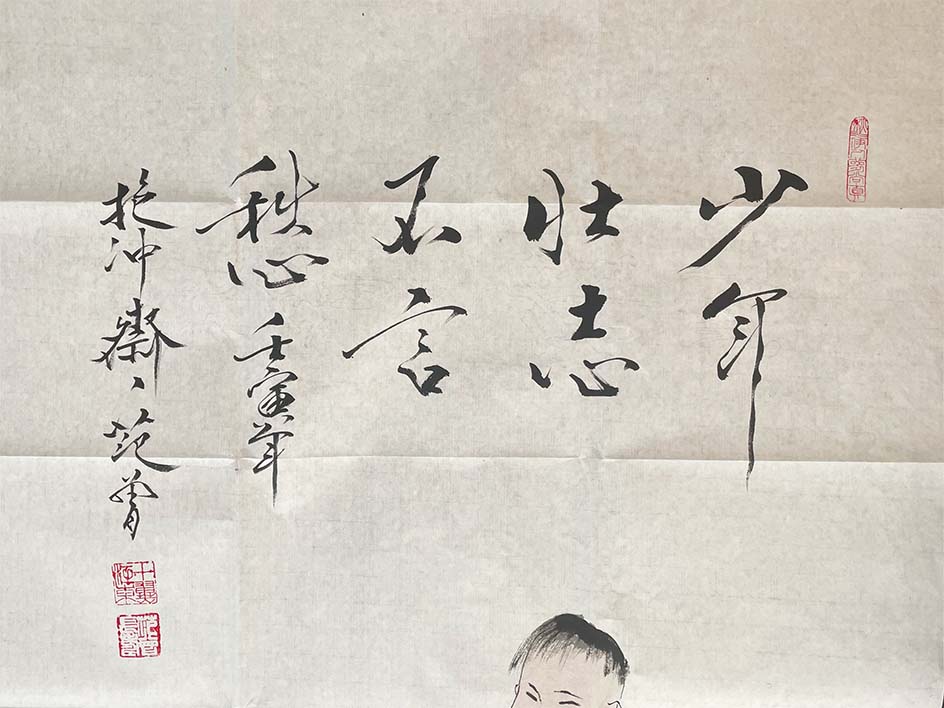 少年
壮志
不言
愁 壬寅年
抱冲齋 范曾